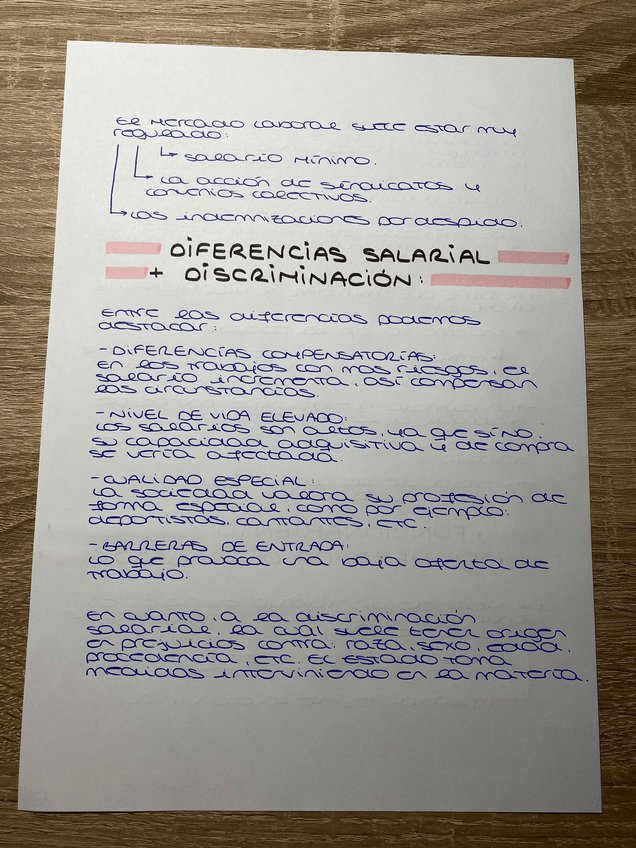 El mercado laboral suele estar muy
regulado:
↳ salario mínimo.
↳ la acción de sindicatos y
convenios colectivos.
↳ las indemnizaciones por despido.
DIFERENCIAS SALARIAL
+ DISCRIMINACIÓN:
Entre las diferencias podemos
destacar:
- DIFERENCIAS COMPENSATORIAS:
En los trabajos con mas riesgos, el
salario incrementa, así compensan
las circunstancias.
- NIVEL DE VIDA ELEVADO:
Los salarios son altos, ya que si no,
su capacidad adquisitiva y de compra
se vería afectada.
- CUALIDAD ESPECIAL:
La sociedad valora su profesión de
forma especial, como por ejemplo:
deportistas, cantantes, etc.
- BARRERAS DE ENTRADA:
Lo que provoca una baja oferta de
trabajo.
En cuanto, a la discriminación
salarial, la cuál suele tener origen
en prejuicios contra: raza, sexo, edad,
procedencia, etc. El Estado toma
medidas interviniendo en la materia.